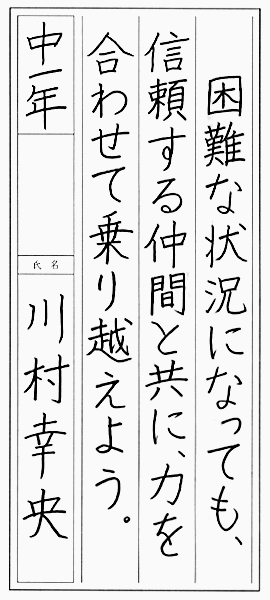 困難な状況になっても、
信頼する仲間と共に、力を
合わせて乗り越えよう。
中一年
氏名
川村幸央